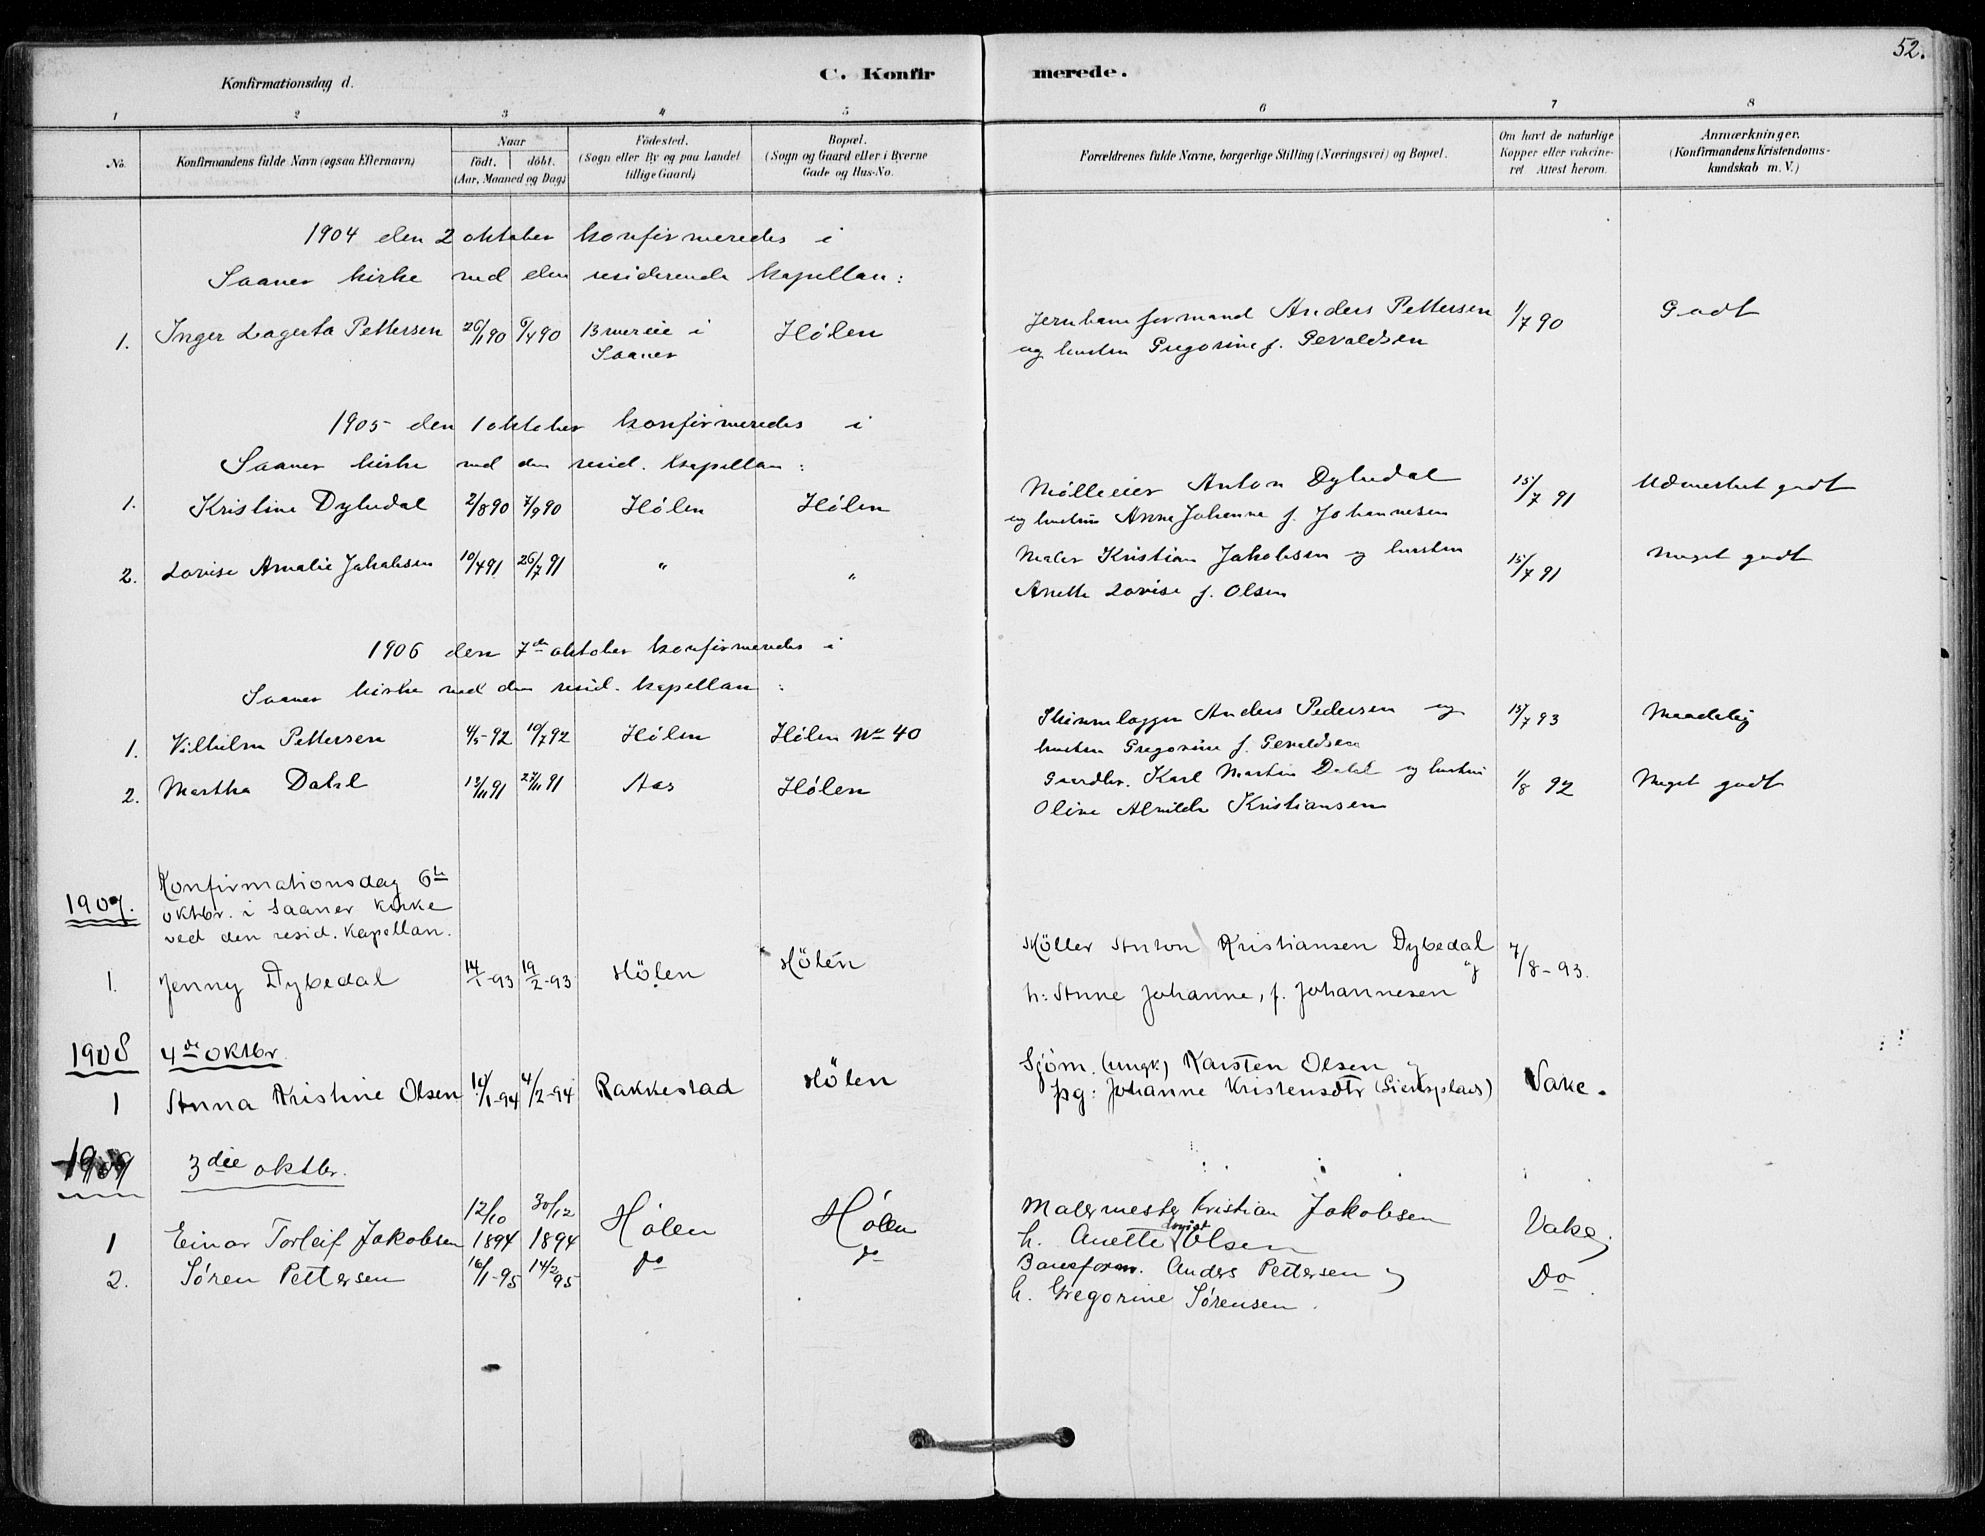 52.
Konfirmationsdag d.
C. Konfir merede.
1 2 3 4 5 6 7 8
No.
Konfirmandens fulde Navn (ogsaa Efternavn)
Naar
födt. döbt.
(Aar, Maaned og Dag)
Födested.
(Sogn eller By og paa Landet
tillige Gaard)
Bopæl.
(Sogn og Gaard eller i Byerne
Gade og Hus-No.
Forældrenes fulde Navne, borgerlige Stilling (Næringsvei) og Bopæl.
Om havt de naturlige
Kopper eller vakcine-
ret Attest herom.
Anmærkninger.
(Konfirmandens Kristendoms-
kundskab m. V.)
1904 den 2 oktober konfirmeredes i
Saaner kirke ved den residerende kapellan:
1. Inger Lagerta Pettersen 26/1 90 6/4 90 i Høl​en Jernbaneformand Anders Pettersen 1/7 90 Godt
Saaner og hustru Gregorine f. Gevaldsen
1905 den 1 oktober konfirmeredes i
Saaner kirke ved den resid. kapellan:
1. Kristine Dybedal 2/8 90 7/9 90 Hølen Hølen Mølleeier Anton Dybedal 15/7 91 Udmerket godt
og hustru Anne Johanne f. Johannesen
2. Lovise Amalie Jakobsen 10/4 91 26/7 91 " " Maler Kristian Jakobsen og hustru 15/7 91 Meget godt
Anette Lovise f. Olsen
1906 den 7de oktober konfirmeredes i
Saaner kirke ved den resid. kapellan:
1. Vilhelm Pettersen 4/5 92 10/7 92 Hølen Hølen No 40 Anders Pedersen og 15/7 93 Maadelig
hustru Gregorine f. Gevaldsen
2. Martha Dahl 13/11 91 27/11 91 Aas Hølen Gaardbr. Karl Martin Dahl og hustru 1/8 92 Meget godt
Oline Alvilde Kristiansen
1907. Konfirmationsdag 6te
oktbr. i Saaner Kirke
ved den resid. Kapellan.
1. Jenny Dybedal 14/1-93 19/2-93 Hölen Hölen Möller Anton Kristiansen Dybedal og 7/8-93.
h: Anne Johanne, f. Johannesen
1908 4de oktbr
1 Anna Kristine Olsen 14/1-94 4/2-94 Rakkestad Hölen Sjöm. (ungk.) Karsten Olsen og Vake.
pg: Johanne Kristensdtr
1909 3die oktbr.
1 Einar Torleif Jakobsen 12/10 1894 30/12 1894 Hølen Hølen Malermester Kristian Jakobsen Vake
h. Anette Lovise Olsen
2. Søren Pettersen 16/1-95 14/2 95 do do Baneform. Anders Pettersen og Do
h. Gregorine Sørensen.